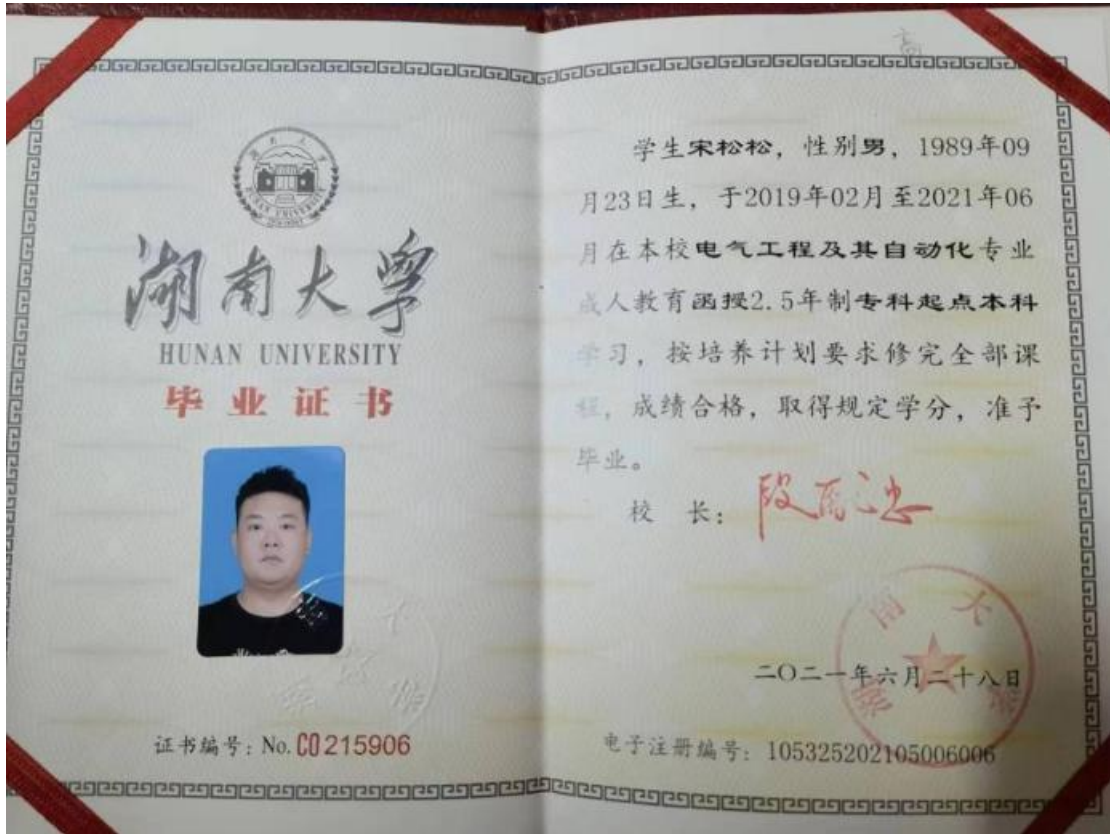 湖南大学
HUNAN UNIVERSITY
毕业证书
证书编号：No. C0215906
高
学生宋松松，性别男，1989年09
月23日生，于2019年02月至2021年06
月在本校电气工程及其自动化专业
成人教育函授2.5年制专科起点本科
学习，按培养计划要求修完全部课
程，成绩合格，取得规定学分，准予
毕业。
校 长：
二〇二一年六月二十八日
湖南大学
电子注册编号：105325202105006006